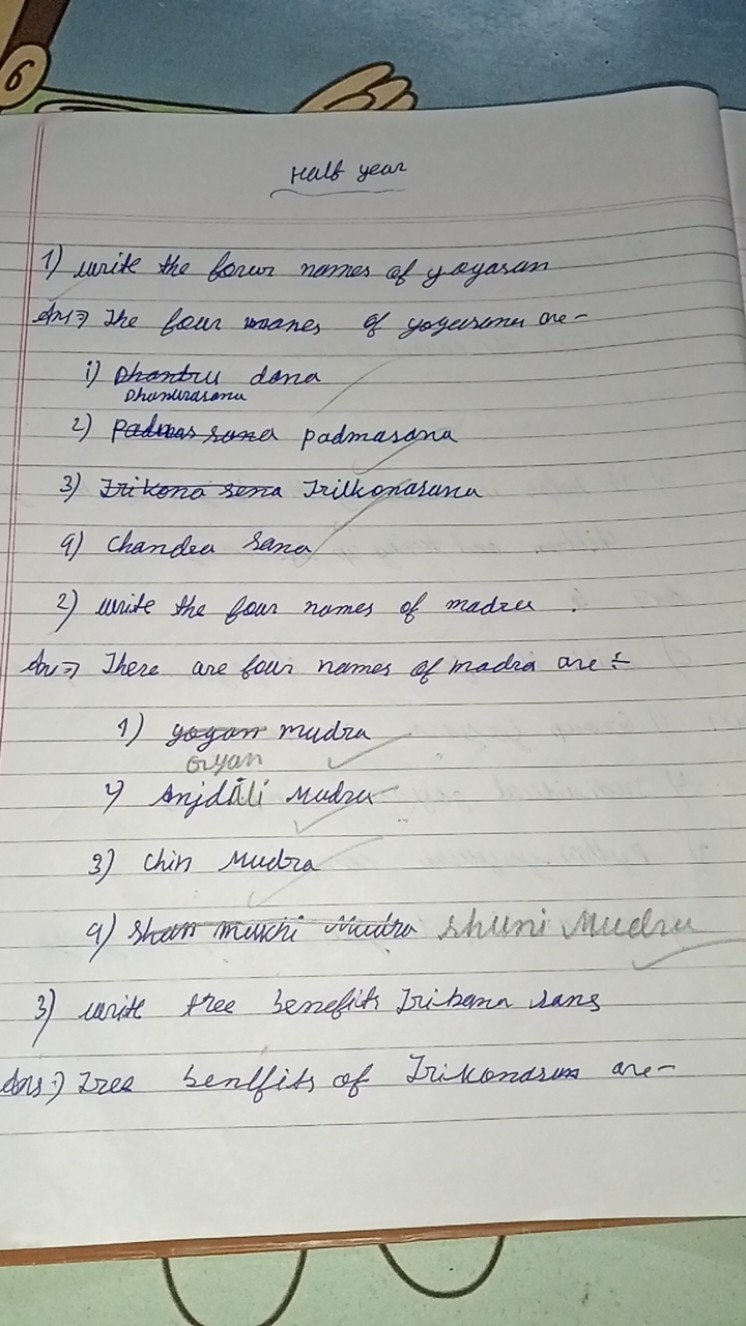 6
Half year
1) write the forur names of yoyasan
Ans⇒ The four wanes of yoyasana are-
i) Dhantru dana
Dhanurasana
2) Padmas sana padmasana
3) Trikona sena Trilkonasana
4) Chandra Sana
2) write the four names of madru.
Ans⇒ There are four names of madra are ÷
1) yogan mudra
Gryan
2) Anjdali Mudra
3) Chin Mudra
4) Shan mukhi Mudra Shuni Mudra
3) write tree benefits Trikana sans
Ans:) Tree benlfits of Trikonasan are-